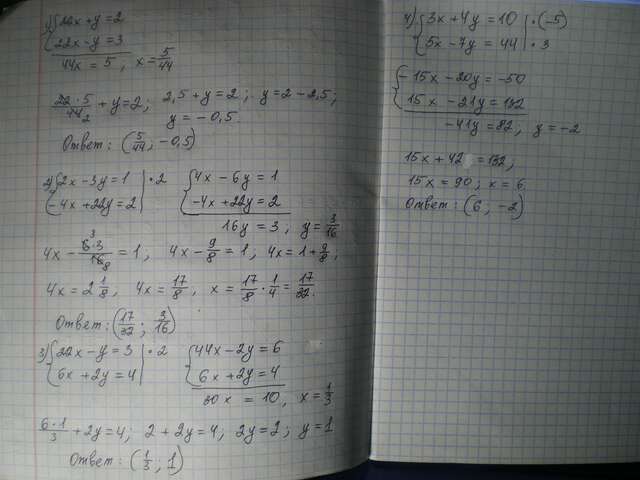 1) {22x + y = 2
{22x - y = 3
44x = 5, x = 5/44
22·5/44 2 + y = 2; 2,5 + y = 2; y = 2 - 2,5;
y = -0,5.
Ответ: (5/44; -0,5)
2) {2x - 3y = 1 | ·2 {4x - 6y = 1
{-4x + 22y = 2 {-4x + 22y = 2
16y = 3, y = 3/16
4x - 6·3 3/16 8 = 1; 4x - 9/8 = 1; 4x = 1 + 9/8,
4x = 2 1/8, 4x = 17/8, x = 17/8 · 1/4 = 17/32.
Ответ: (17/32; 3/16)
3) {22x - y = 3 | ·2 {44x - 2y = 6
{6x + 2y = 4 {6x + 2y = 4
30x = 10, x = 1/3
6·1/3 + 2y = 4; 2 + 2y = 4, 2y = 2; y = 1
Ответ: (1/3; 1)
4) {3x + 4y = 10 | ·(-5)
{5x - 7y = 44 | ·3
{-15x - 20y = -50
{15x - 21y = 132
-41y = 82, y = -2
15x + 42 = 132,
15x = 90; x = 6.
Ответ: (6; -2)